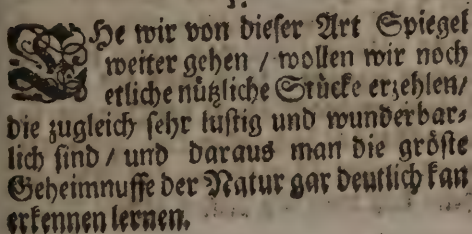 EHe wir von dieser Art Spiegel
weiter gehen / wollen wir noch
etliche nützliche Stücke erzehlen/
die zugleich sehr lustig und wunderbar⸗
lich sind / und daraus man die gröste
Geheimnusse der Natur gar deutlich kan
erkennen lernen.